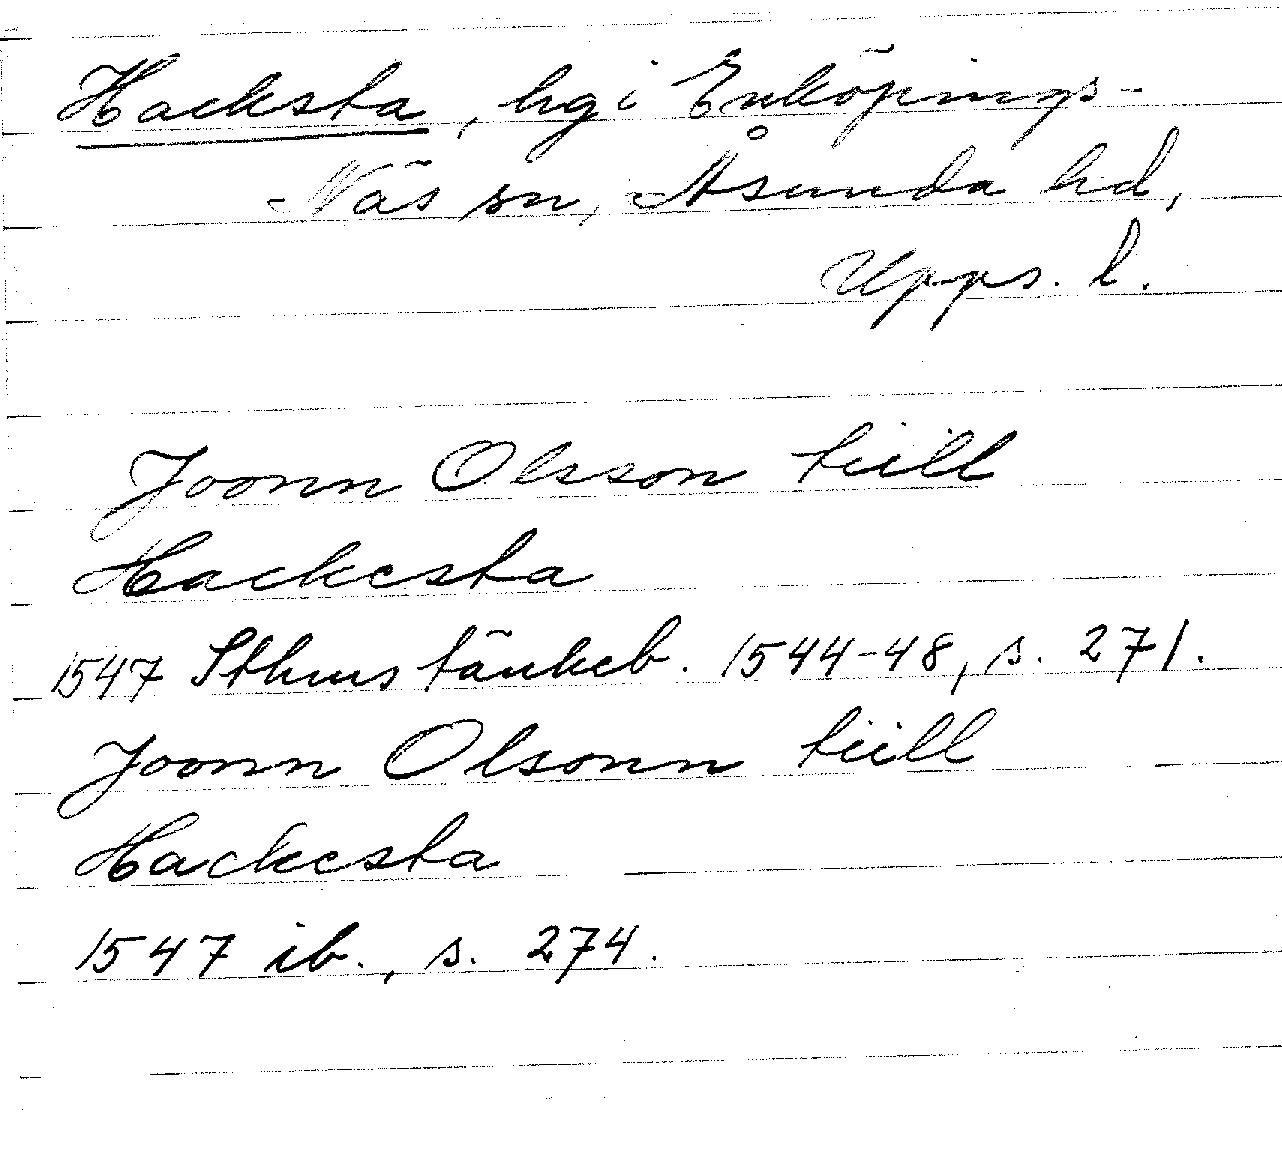 Hacksta, hg i Enköpings-
Näs sn, Åsunda hd,
Upps. l.
Joonn Olsson tiill
Hackesta
1547 Sthms tänkeb. 1544-48, s. 271.
Joonn Olsonn tiill
Hackesta
1547 ib., s. 274.